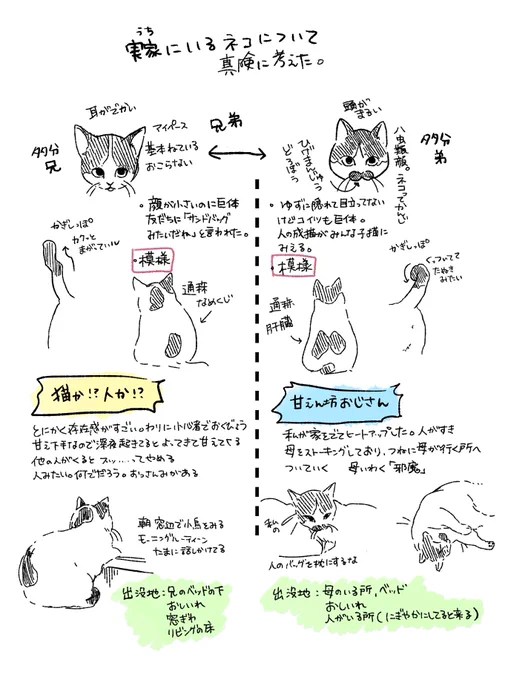 うち
実家にいるネコについて
真険に考えた。
耳がでかい
多分
兄
マイペース
基本ねている
おこらない
兄弟
頭が
まるい
ひげまんじゅう
どろぼう
八虫類顔。ネコってかんじ
多分
弟
・顔が小さいのに巨体
友だちに「サンドバッグ
みたいだね」と言われた。
・模様
かぎしっぽ
カクッと
まがっている
通称
なめくじ
・ゆずに隠れて目立ってない
けどコイツも巨体。
人の成猫がみんな子猫に
みえる。
・模様
かぎしっぽ
くっついてて
たぬき
みたい
通称
肝臓
猫か!?人か!?
とにかく存在感がすごい。わりに小心者でおくびょう
甘え下手なので深夜起きてるとよってきて甘えてくる
他の人がくるとスッ……ってやめる
人みたい。何でだろう。おっさんみがある
朝 窓辺で小鳥をみる
モーニングルーティーン
たまに話しかけてる
出没地：兄のベッドの下
おしいれ
窓ぎわ
リビングの床
甘えん坊おじさん
私が家をでてヒートアップした。人がすき
母をストーキングしており、つねに母が行く所へ
ついていく 母いわく「邪魔」
私の
人のバッグを枕にするな
出没地：母のいる所、ベッド
おしいれ
人がいる所(にぎやかにしてると来る)